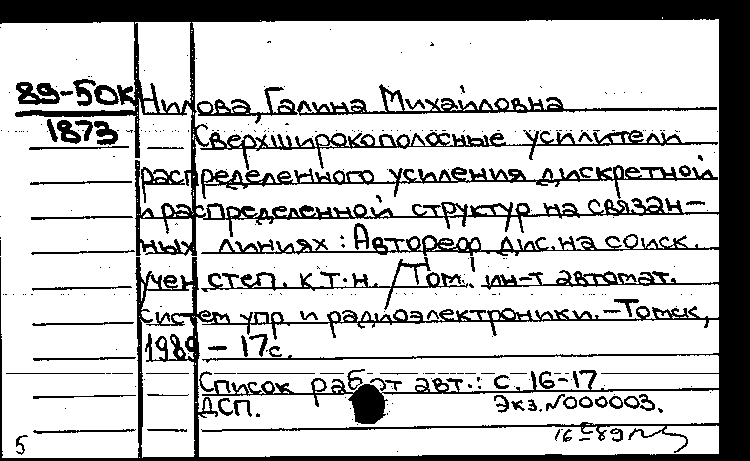 89-50К Нилова, Галина Михайловна
1873 Сверхширокополосные усилители
распределенного усиления дискретной
и распределенной структур на связан-
ных линиях: Автореф. дис. на соиск.
учен. степ. к.т.н. /Том. ин-т автомат.
систем упр. и радиоэлектроники. -Томск,
1989 - 17с.
Список работ авт.: с. 16-17.
ДСП. Экз.N000003.
5